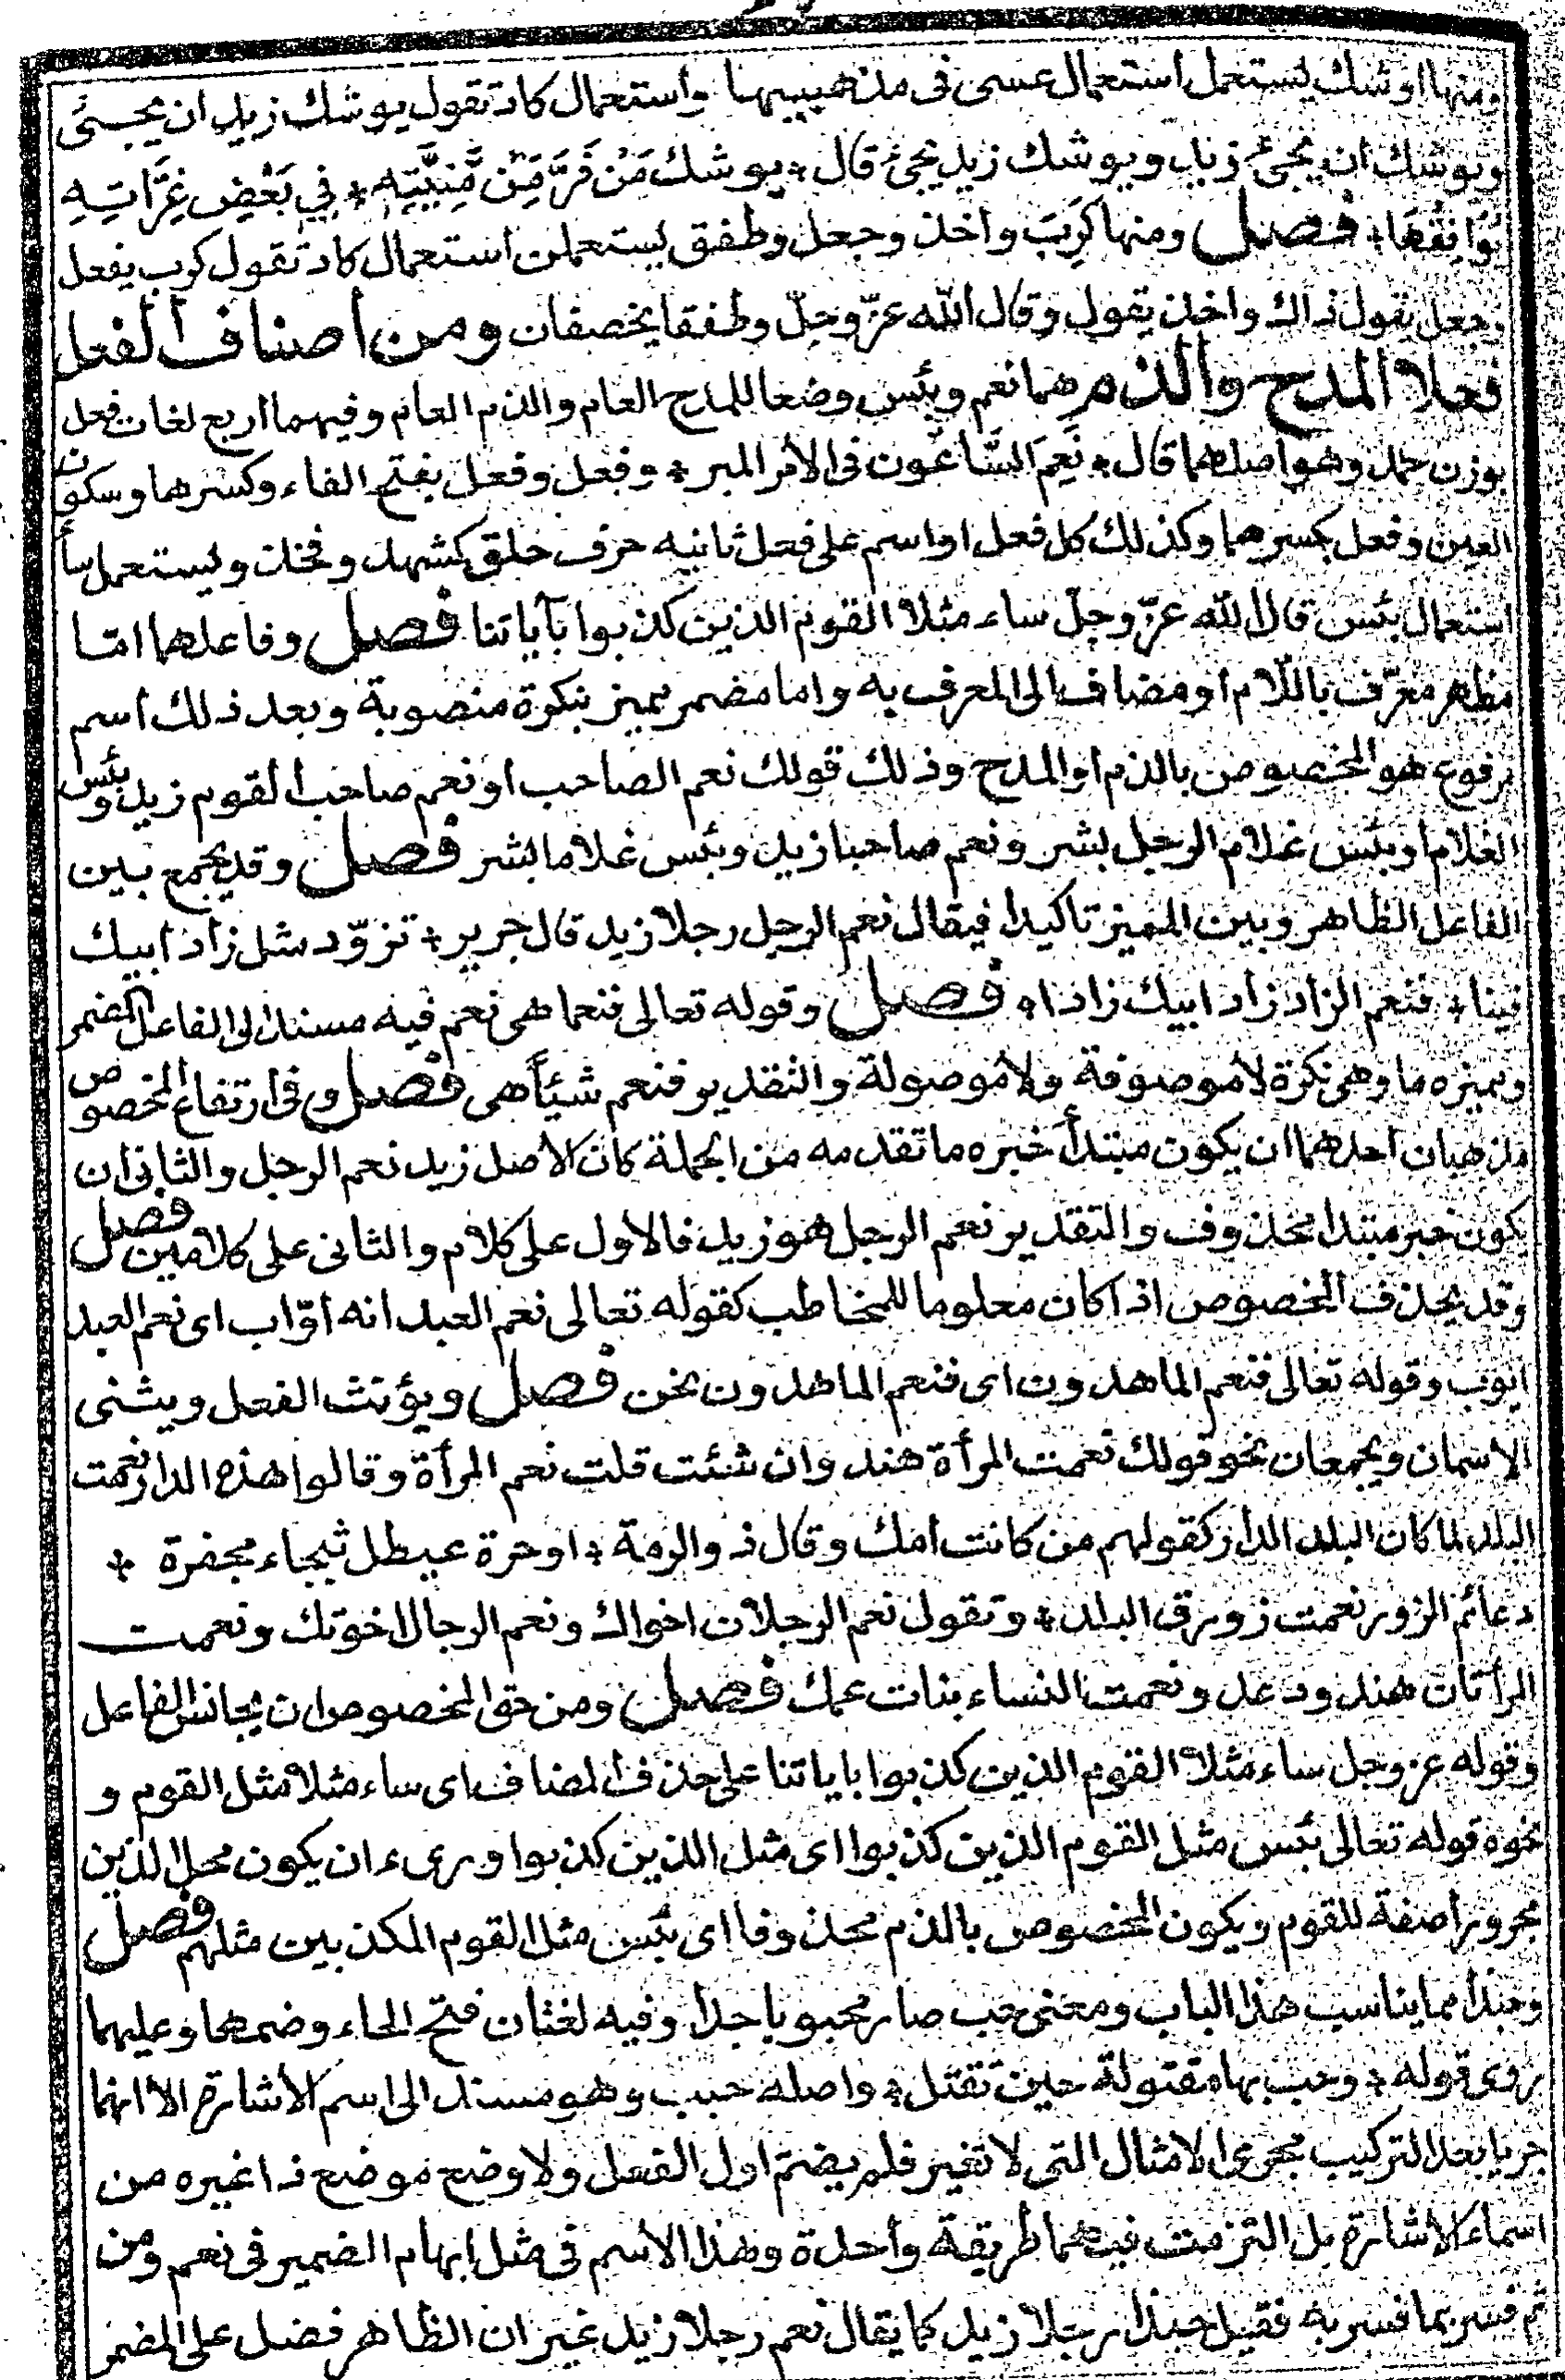 ومنها اوشك يستعمل استعمال عسى فى مذهبيها واستعمال كاد تقول يوشك زيد ان يجيئ
ويوشك ان يجئ زيد ويوشك زيد يجئ قال ۞ يوشك مَنْ فَرَّ مِّنْ مَّنِيَّتِهِ ۞ فِي بَعْضِ غِرَّاتِهِ
يُوَافِقُهَا ۞ فصل ومنها كَرَبَ واخذ وجعل وطفق يستعملن استعمال كاد تقول كرب يفعل
وجعل يقول ذاك واخذ يقول وقال الله عزّ وجلّ وطفقا يخصفان ومن اصناف الفعل
فعلا المدح والذم هما نعم وبئس وضعا للمدح العام والذم العام وفيهما اربع لغات فعل
بوزن حمد وهو اصلهما قال ۞ نَعِمَ السَّاعُون فى الامر المبر ۞ وفعل وفعل بفتح الفاء وكسرهما وسكون
العين وفعل بكسرهما وكذلك كل فعل او اسم على فعل ثانيه حرف حلق كشهد وفخذ ويستعمل ساء
استعمال بئس قال الله عزّ وجلّ ساء مثلا القوم الذين كذبوا بآياتنا فصل وفاعلهما امّا
مظهر معرّف باللّام او مضاف الى المعرف به واما مضمر مميز بنكرة منصوبة وبعد ذلك اسم
مرفوع هو المخصوص بالذم او المدح وذلك قولك نعم الصاحب او نعم صاحب القوم زيد وبئس
الغلام او بئس غلام الرجل بشر ونعم صاحبا زيد وبئس غلاما بشر فصل وقد يجمع بين
الفاعل الظاهر وبين المميز تاكيدا فيقال نعم الرجل رجلا زيد قال جرير ۞ تزوّد مثل زاد ابيك
فينا ۞ فنعم الزاد زاد ابيك زادا ۞ فصل وقوله تعالى فنعما هى نعم فيه مسند الى الفاعل المضمر
ومميزه ما وهى نكرة لا موصوفة ولا موصولة والتقدير فنعم شيئاً هى فصل وفى ارتفاع المخصوص
مذهبان احدهما ان يكون مبتدأ خبره ما تقدمه من الجملة كان الاصل زيد نعم الرجل والثانى ان
يكون خبر مبتدا محذوف والتقدير نعم الرجل هو زيد فالاول على كلام والثانى على كلامين فصل
وقد يحذف المخصوص اذا كان معلوما للمخاطب كقوله تعالى نعم العبد انه اوّاب اى نعم العبد
ايوب وقوله تعالى فنعم الماهدون اى فنعم الماهدون نحن فصل ويؤنث الفعل ويثنى
الاسمان ويجمعان نحو قولك نعمت المرأة هند وان شئت قلت نعم المرأة وقالوا هذه الدار نعمت
البلد لما كان البلد الدار كقولهم من كانت امك وقال ذو الرمة ۞ او حرة عيطل ثبجاء مجفرة ۞
دعائم الزور نعمت زورق البلد ۞ وتقول نعم الرجلان اخواك ونعم الرجال اخوتك ونعمت
المرأتان هند ودعد ونعمت النساء بنات عمك فصل ومن حق المخصوص ان يجانس الفاعل
وقوله عز وجل ساء مثلا القوم الذين كذبوا باياتنا على حذف المضاف اى ساء مثلا مثل القوم و
نحوه قوله تعالى بئس مثل القوم الذين كذبوا اى مثل الذين كذبوا ورىء ان يكون محل الذين
مجرورا صفة للقوم ويكون المخصوص بالذم محذوفا اى بئس مثل القوم المكذبين مثلهم فصل
وحبذا مما يناسب هذا الباب ومعنى حب صار محبوبا جدا وفيه لغتان فتح الحاء وضمها وعليهما
روى قوله ۞ وحب بها مقتولة حين تقتل ۞ واصله حبب وهو مسند الى اسم الاشارة الا انهما
جريا بعد التركيب مجرى الامثال التى لا تغير فلم يضم اول الفعل ولا وضع موضع ذا غيره من
اسماء الاشارة بل التزمت فيهما طريقة واحدة وهذا الاسم فى مثل ابهام الضمير فى نعم ومن
ثم فسر بما فسر به فقيل حبذا رجلا زيد كما يقال نعم رجلا زيد غير ان الظاهر فضل على المضمر